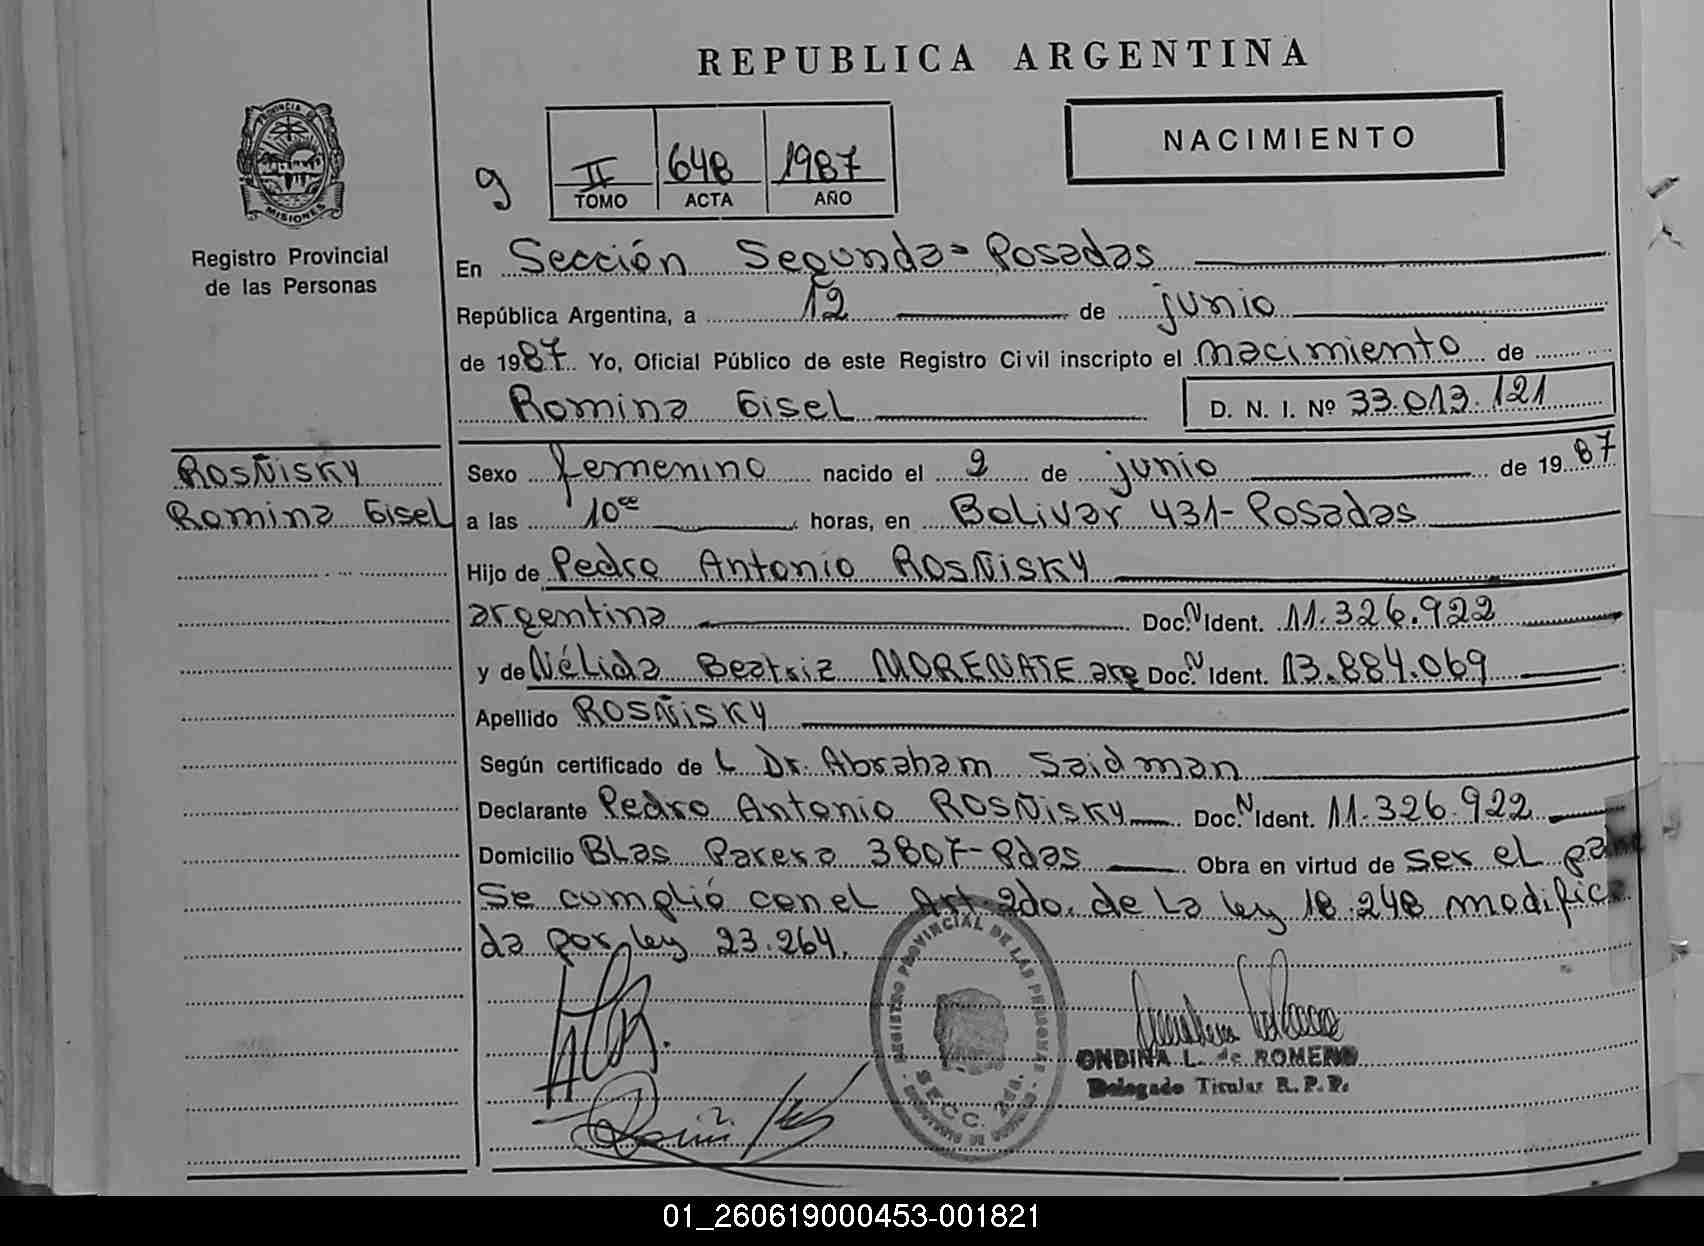 REPUBLICA ARGENTINA
PROVINCIA DE
MISIONES
Registro Provincial
de las Personas
NACIMIENTO
g II 648 1987
TOMO ACTA AÑO
En Sección Segunda = Posadas
República Argentina, a 12 de junio
de 1987. Yo, Oficial Público de este Registro Civil inscripto el nacimiento de
Romina Gisel D. N. I. Nº 33.013.121
ROSÑISKY
Romina Gisel
Sexo femenino nacido el 9 de junio de 1987
a las 10 horas, en Bolivar 431-Posadas
Hijo de Pedro Antonio ROSÑISKY
argentina Doc. N Ident. 11.326.922
y de Nélida Beatriz MORENATE arg Doc. N Ident. 13.884.069
Apellido ROSÑISKY
Según certificado de L Dr. Abraham Saidman
Declarante Pedro Antonio ROSÑISKY Doc. N Ident. 11.326.922
Domicilio Blas Parera 3807-Pdas Obra en virtud de ser el
Se cumplió con el Art 2do. de la ley 18.248 modifica
da por ley 23.264.
REGISTRO PROVINCIAL DE LAS PERSONAS
SECC. 2da.
ONDINA L. de ROMERO
Delegado Titular R. P. P.
01_260619000453-001821